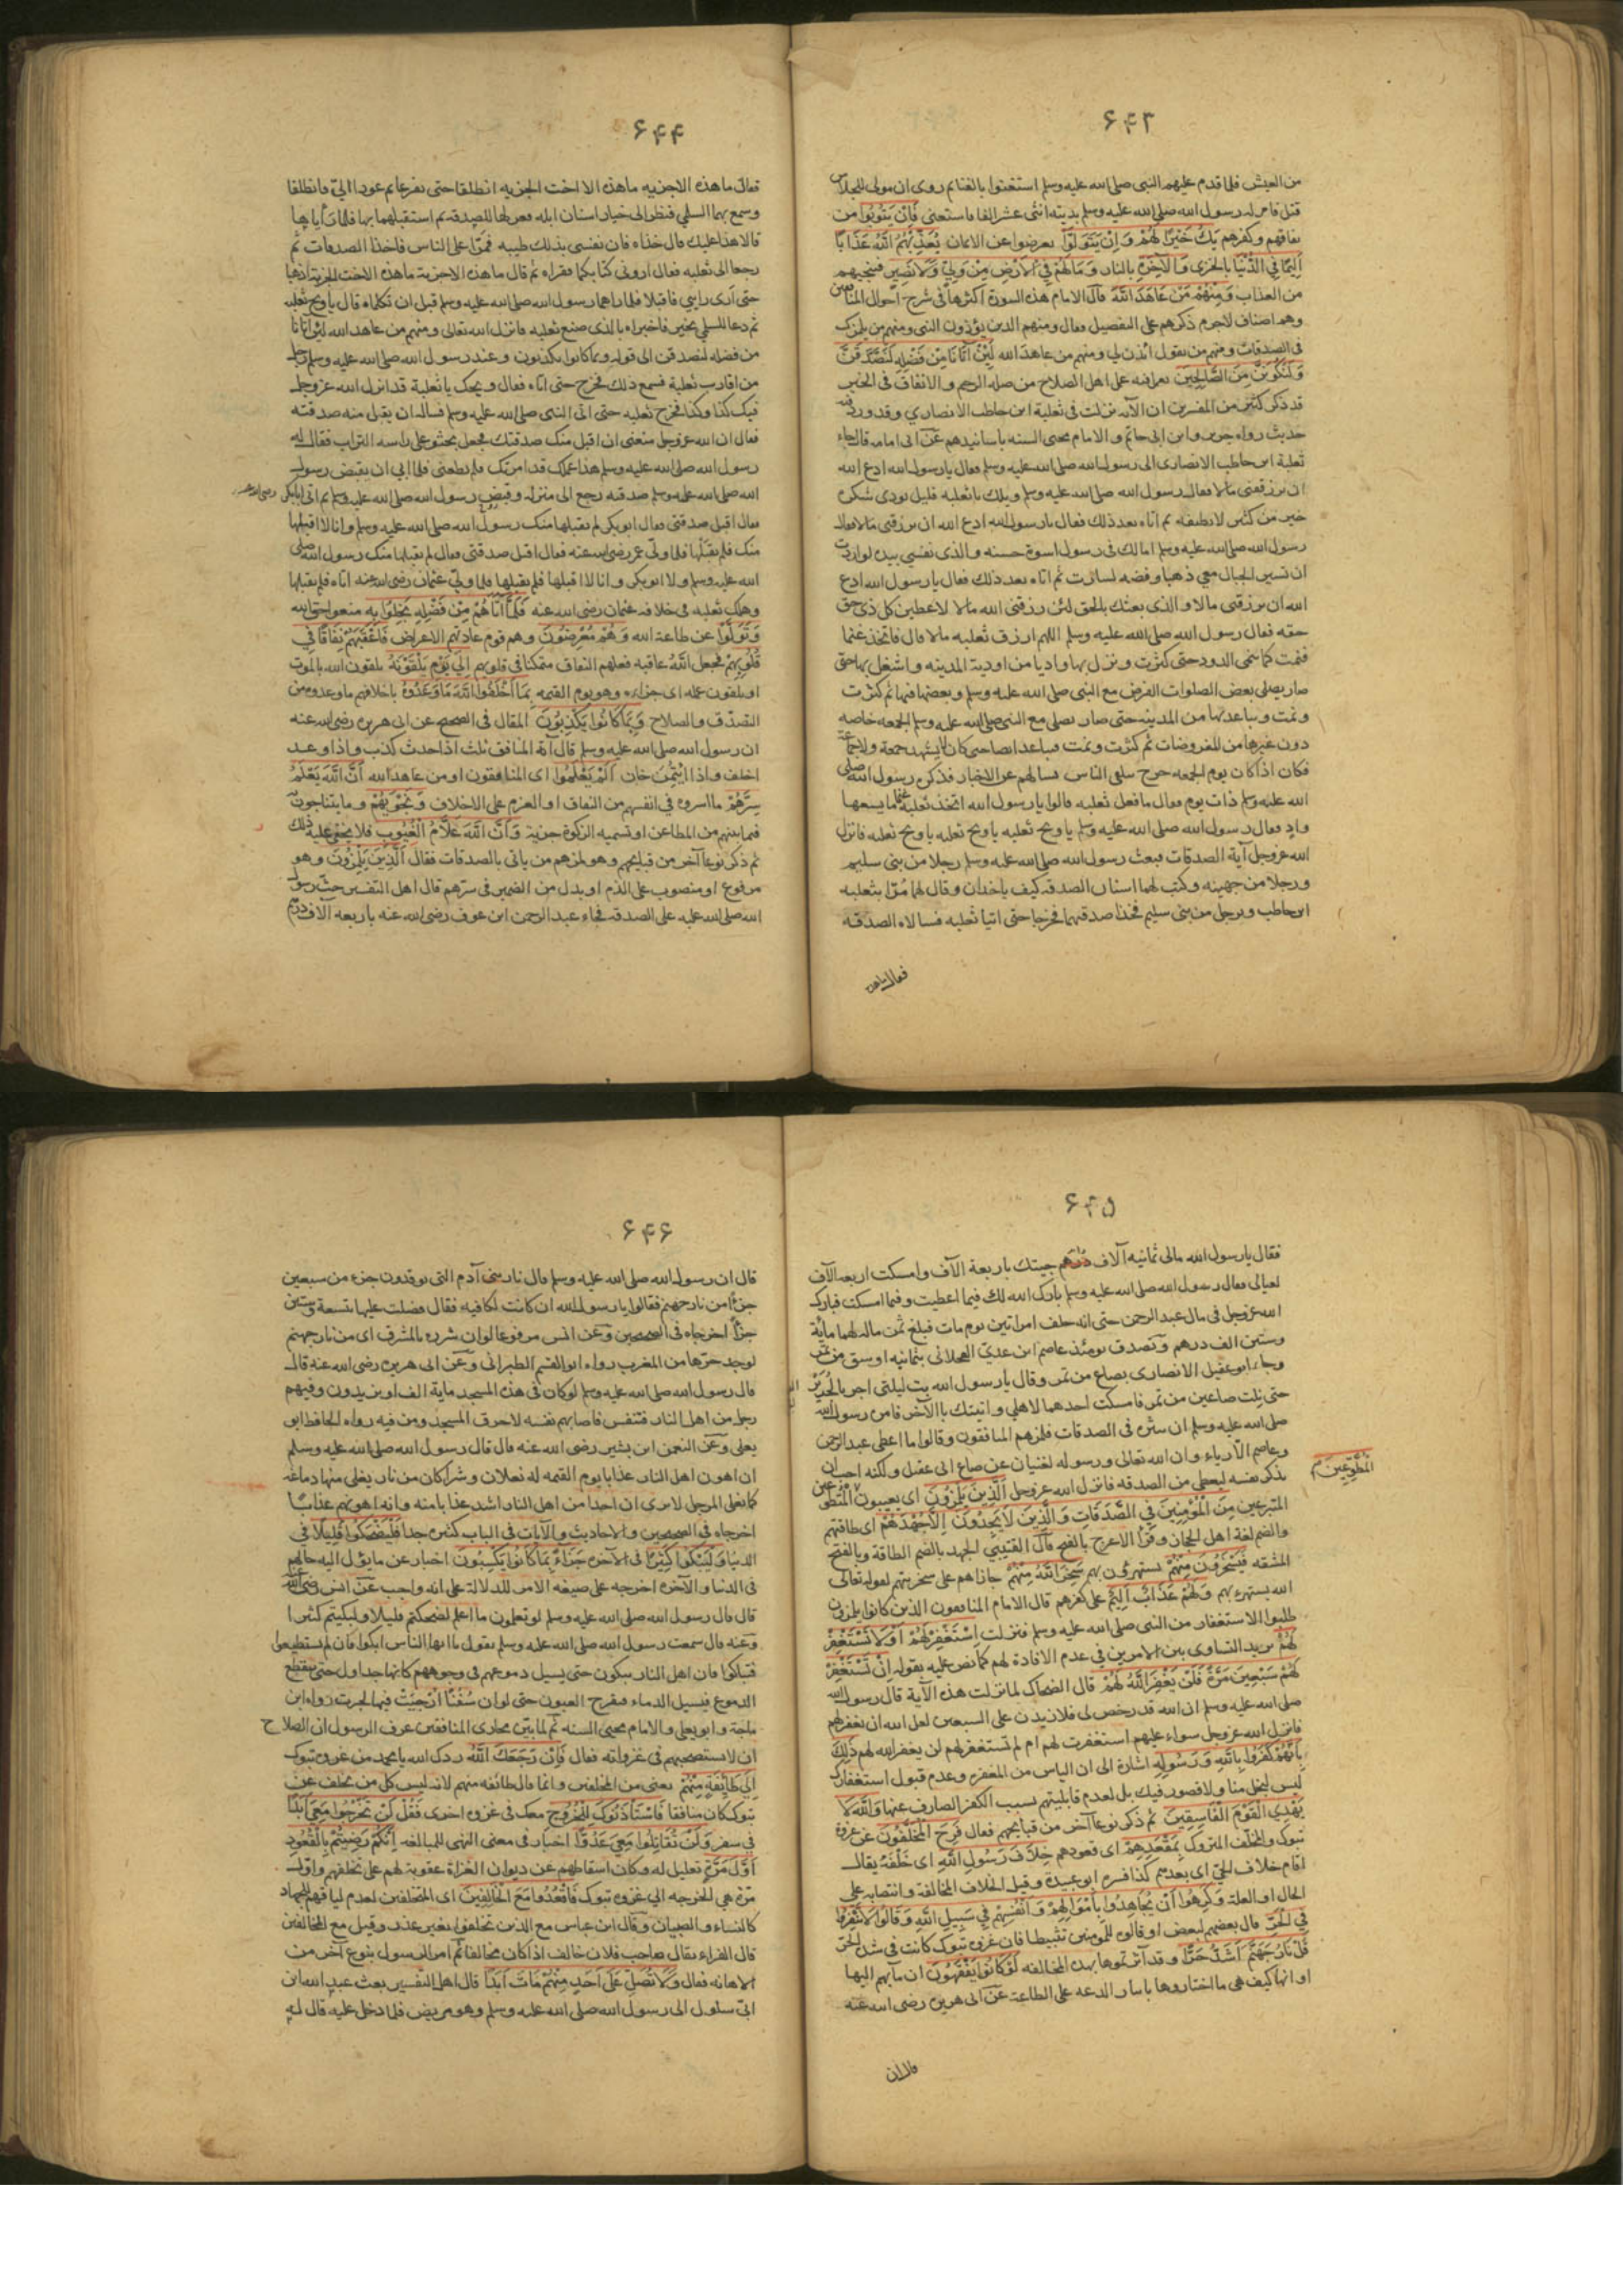 ۶۴۳
من العيش فلما قدم عليهم النبى صلى الله عليه وسلم استغنوا بالغنايم روى ان مولى للجلاس
قتل فامر له رسول الله صلى الله عليه وسلم بديته اثنى عشر الفا فاستغنى فَاِنْ يَتُوبُوا من
نفاقهم وكفرهم يَكُ خَيْرًا لَهُمْ وَاِنْ يَتَوَلَّوْا يعرضوا عن الايمان يُعَذِّبْهُمُ اللّٰهُ عَذَابًا
اَلِيمًا فِي الدُّنْيَا بالخزى وَالْآخِرَةِ بالنار وَمَا لَهُمْ فِي الْاَرْضِ مِنْ وَلِيٍّ وَلَا نَصِيرٍ فينجيهم
من العذاب وَمِنْهُمْ مَنْ عَاهَدَ اللّٰهَ قال الامام هذه السورة اكثرها فى شرح احوال المنافقين
وهم اصناف لاجرم ذكرهم على التفصيل فقال ومنهم الذين يؤذون النبى ومنهم من يلمزك
فى الصدقات ومنهم من يقول ائذن لى ومنهم من عاهد الله لَئِنْ آتَانَا مِنْ فَضْلِهِ لَنَصَّدَّقَنَّ
وَلَنَكُونَنَّ مِنَ الصَّالِحِينَ يعرافيه على اهل الصلاح من صلة الرحم والانفاق فى الخير
قد ذكر كثير من المفسرين ان الآية نزلت فى ثعلبة ابن حاطب الانصاري وقد ورد فيه
حديث رواه جرير وابن ابى حاتم والامام محيى السنه باسانيدهم عن ابى امامه قال جاء
ثعلبة ابن حاطب الانصارى الى رسول الله صلى الله عليه وسلم فقال يارسول الله ادع الله
ان يرزقنى مالا فقال رسول الله صلى الله عليه وسلم ويلك يا ثعلبه قليل تودى شكره
خير من كثير لا تطيقه ثم اتاه بعد ذلك فقال يارسول الله ادع الله ان يرزقنى مالا فقال
رسول الله صلى الله عليه وسلم اما لك فى رسول اسوة حسنه والذى نفسى بيده لو اردت
ان تسير الجبال معى ذهبا وفضه لسارت ثم اتاه بعد ذلك فقال يارسول الله ادع
الله ان يرزقنى مالا والذى بعثك بالحق لئن رزقنى الله مالا لاعطين كل ذى حق
حقه فقال رسول الله صلى الله عليه وسلم اللهم ارزق ثعلبه مالا قال فاتخذ غنما
فنمت كما ينمى الدود حتى كثرت ونزل بها واديا من اودية المدينه واشغل بها حتى
صار يصلى بعض الصلوات الفرض مع النبى صلى الله عليه وسلم وبعضها فيها ثم كثرت
ونمت وتباعد بها من المدينه حتى صار يصلى مع النبى صلى الله عليه وسلم الجمعه خاصه
دون غيرها من المفروضات ثم كثرت ونمت فتباعد ايضا حتى كان لا يشهد جمعة ولا جماعة
فكان اذا كان يوم الجمعه خرج يتلقى الناس يسالهم عن الاخبار فذكره رسول الله صلى
الله عليه وسلم ذات يوم فقال ما فعل ثعلبه قالوا يارسول الله اتخذ ثعلبة غنما ما يسعها
واد فقال رسول الله صلى الله عليه وسلم يا ويح ثعلبه يا ويح ثعلبه يا ويح ثعلبه فانزل
الله عز وجل آية الصدقات فبعث رسول الله صلى الله عليه وسلم رجلا من بنى سليم
ورجلا من جهينه وكتب لهما اسنان الصدقه كيف ياخذان وقال لهما مُرّا بثعلبه
ابن حاطب وبرجل من بنى سليم فخذا صدقتهما فخرجا حتى اتيا ثعلبه فسالاه الصدقه
فقال ما هذه
۶۴۴
فقال ما هذه الاجزيه ما هذه الا اخت الجزيه انطلقا حتى تفرغا ثم عودا اليّ فانطلقا
وسمع بهما السلمي فنظر الى خيار اسنان ابله فعزلها للصدقه ثم استقبلهما بها فلما رأياها
قالا ما هذا عليك قال خذاه فان نفسى بذلك طيبه فمرّا على الناس فاخذا الصدقات ثم
رجعا الى ثعلبه فقال ارونى كتابكما فقراه ثم قال ما هذه الاجزية ما هذه الا اخت الجزية اذهبا
حتى ارى رايي فاقبلا فلما راهما رسول الله صلى الله عليه وسلم قبل ان تكلماه قال يا ويح ثعلبه
ثم دعا للسلمي بخير فاخبراه بالذى صنع ثعلبه فانزل الله تعالى ومنهم من عاهد الله لئن آتانا
من فضله لنصدقن الى قوله وبما كانوا يكذبون وعند رسول الله صلى الله عليه وسلم رجل
من اقارب ثعلبة فسمع ذلك فخرج حتى اتاه فقال ويحك يا ثعلبة قد انزل الله عز وجل
فيك كذا وكذا فخرج ثعلبه حتى اتى النبى صلى الله عليه وسلم فساله ان يقبل منه صدقته
فقال ان الله عز وجل منعنى ان اقبل منك صدقتك فجعل يحثو على راسه التراب فقال له
رسول الله صلى الله عليه وسلم هذا عملك قد امرتك فلم تطعنى فلما ابي ان يقبض رسول
الله صلى الله عليه وسلم صدقته رجع الى منزله وقبض رسول الله صلى الله عليه وسلم ثم اتى ابابكر رضى الله عنه
فقال اقبل صدقتى فقال ابو بكر لم يقبلها منك رسول الله صلى الله عليه وسلم وانا لا اقبلها
منك فلم يقبلها فلما ولّى عمر رضى الله عنه فقال اقبل صدقتى فقال لم يقبلها منك رسول الله صلى
الله عليه وسلم ولا ابو بكر وانا لا اقبلها فلم يقبلها فلما ولّي عثمان رضى الله عنه اتاه فلم يقبلها
وهلك ثعلبه فى خلافه عثمان رضى الله عنه فَلَمَّا آتَاهُمْ مِنْ فَضْلِهِ بَخِلُوا بِهِ منعوا حق الله
وَتَوَلَّوْا عن طاعة الله وَهُمْ مُعْرِضُونَ وهم قوم عادتهم الاعراض فَاَعْقَبَهُمْ نِفَاقًا فِي
قُلُوبِهِمْ فجعل اللّٰهُ عاقبه فعلهم النفاق متمكنا فى قلوبهم اِلَى يَوْمِ يَلْقَوْنَهُ يلقون الله بالموت
او يلقون عمله اى جزاءه وهو يوم القيمه بِمَا اَخْلَفُوا اللّٰهَ مَا وَعَدُوهُ باخلافهم ما وعدوه من
التصدّق والصلاح وَبِمَا كَانُوا يَكْذِبُونَ المقال فى الصحيح عن ابى هريره رضى الله عنه
ان رسول الله صلى الله عليه وسلم قال آية المنافق ثلث اذا حدث كذب واذا وعد
اخلف واذا ايْتُمِنَ خان اَلَمْ يَعْلَمُوا اى المنافقون او من عاهد الله اَنَّ اللّٰهَ يَعْلَمُ
سِرَّهُمْ ما اسروه فى انفسهم من النفاق او العزم على الاخلاف وَنَجْوَيهُمْ وما يتناجون
فيما بينهم من المطاعن او تسميه الزكوة جزية وَاَنَّ اللّٰهَ عَلَّامُ الْغُيُوبِ فلا يخفى عليه ذلك
ثم ذكر نوعا آخر من قبايحهم وهو لمزهم من ياتى بالصدقات فقال اَلَّذِينَ يَلْمِزُونَ وهو
مرفوع او منصوب على الذم او بدل من الضمير فى سرّهم قال اهل التفسير حث رسول
الله صلى الله عليه على الصدقه فجاء عبد الرحمن ابن عوف رضى الله عنه باربعه الاف درهم
۶۴۵
فقال يارسول الله مالى ثمانيه آلاف درهم جيتك باربعة الآف وامسكت اربعه الآف
لعيالى فقال رسول الله صلى الله عليه وسلم بارك الله لك فيما اعطيت وفيما امسكت فبارك
الله عز وجل فى مال عبد الرحمن حتى انه خلف امراتين يوم مات فبلغ ثمن ماله لهما ماية
وستين الف درهم وتصدق يومئذ عاصم ابن عديّ العجلانى بثمانيه اوسق من تمر
وجاء ابو عقيل الانصارى بصاع من تمر وقال يارسول الله بت ليلتى اجر بالجرير
حتى نِلت صاعين من تمر فامسكت احدهما لاهلي واتيتك بالآخر فامر رسول الله
صلى الله عليه وسلم ان ينثره فى الصدقات فلمزهم المنافقون وقالوا ما اعطى عبد الرحمن
وعاصم الّا رياء وان الله تعالى ورسوله لغنيان عن صاع ابى عقيل ولكنه احب ان
يذكر نفسه ليعطى من الصدقه فانزل الله عز وجل اَلَّذِينَ يَلْمِزُونَ اى يعيبون الْمُتَطَوِّعِينَ
الْمُطَّوِّعِينَ م
المتبرعين مِنَ الْمُؤْمِنِينَ فِي الصَّدَقَاتِ وَالَّذِينَ لَا يَجِدُونَ اِلَّا جُهْدَهُمْ اى طاقتهم
والضم لغة اهل الحجاز وقرأ الاعرج بالفتح قال القتيبي الجهد بالضم الطاقة وبالفتح
المشقه فَيَسْخَرُونَ مِنْهُمْ يستهزؤن بهم سَخِرَ اللّٰهُ مِنْهُمْ جازاهم على سخريتهم لقوله تعالى
الله يستهزء بهم وَلَهُمْ عَذَابٌ اَلِيمٌ على كفرهم قال الامام المنافقون الذين كانوا يلمزون
طلبوا الاستغفار من النبى صلى الله عليه وسلم فنزلت اِسْتَغْفِرْ لَهُمْ اَوْ لَا تَسْتَغْفِرْ
لَهُمْ يريد التساوى بين الامرين فى عدم الافادة لهم كما نص عليه بقوله اِنْ تَسْتَغْفِرْ
لَهُمْ سَبْعِينَ مَرَّةً فَلَنْ يَغْفِرَ اللّٰهُ لَهُمْ قال الضحاك لما نزلت هذه الآية قال رسول الله
صلى الله عليه وسلم ان الله قد رخص لى فلازيدن على السبعين لعل الله ان يغفر لهم
فانزل الله عز وجل سواء عليهم استغفرت لهم ام لم تستغفر لهم لن يغفر الله لهم ذٰلِكَ
بِاَنَّهُمْ كَفَرُوا بِاللّٰهِ وَرَسُولِهِ اشارة الى ان الياس من المغفره وعدم قبول استغفارك
ليس لبخل منا ولا قصور فيك بل لعدم قابليتهم بسبب الكفر الصارف عنها وَاللّٰهُ لَا
يَهْدِي الْقَوْمَ الْفَاسِقِينَ ثم ذكر نوعا آخر من قبايحهم فقال فَرِحَ الْمُخَلَّفُونَ عن غزوة
تبوك والمخلّف المتروك بِمَقْعَدِهِمْ اى قعودهم خِلَافَ رَسُولِ اللّٰهِ اى خَلْفَهُ يقال
اقام خلاف الحيّ اى بعدهم كذا فسره ابو عبيدة وقيل الخلاف المخالفة وانتصابه على
الحال او العلة وَكَرِهُوا اَنْ يُجَاهِدُوا بِاَمْوَالِهِمْ وَاَنْفُسِهِمْ فِي سَبِيلِ اللّٰهِ وَقَالُوا لَا تَنْفِرُوا
فِي الْحَرِّ قال بعضهم لبعض او قالوه للمومنين تثبيطا فان غزوه تبوك كانت فى شدة الحر
قُلْ نَارُ جَهَنَّمَ اَشَدُّ حَرًّا وقد آثرتموها بهذه المخالفه لَوْ كَانُوا يَفْقَهُونَ ان مآبهم اليها
او انها كيف هى ما اختاروها بايثار الدعه على الطاعة عن ابى هريره رضى الله عنه
قال ان
۶۴۶
قال ان رسول الله صلى الله عليه وسلم قال نار بنى آدم التى توقدون جزء من سبعين
جزءًا من نار جهنم فقالوا يارسول الله ان كانت لكافيه فقال فضلت عليها بتسعة وستين
جزءًا اخرجاه فى الصحيحين وعن انس مرفوعا لو ان شرره بالمشرق اى من نار جهنم
لوجد حرّها من المغرب رواه ابو القسم الطبرانى وعن ابى هريره رضى الله عنه قال
قال رسول الله صلى الله عليه وسلم لو كان فى هذه المسجد ماية الف او يزيدون وفيهم
رجل من اهل النار فتنفس فاصابهم نفسه لاحرق المسجد ومن فيه رواه الحافظ ابو
يعلى وعن النعمن ابن بشير رضى الله عنه قال قال رسول الله صلى الله عليه وسلم
ان اهون اهل النار عذابا يوم القيمه له نعلان وشراكان من نار يغلى منها دماغه
كما يغلى المرجل لا يرى ان احدا من اهل النار اشد عذابا منه وانه اهونهم عذابًا
اخرجاه فى الصحيحين والاحاديث والآيات فى الباب كثيره جدا فَلْيَضْحَكُوا قَلِيلًا فى
الدنيا وَلْيَبْكُوا كَثِيرًا فى الآخره جَزَاءً بِمَا كَانُوا يَكْسِبُونَ اخبار عن ما يؤل اليه حالهم
فى الدنيا والآخره اخرجه على صيغه الامر للدلالة على انه واجب عن انس رضى الله عنه
قال قال رسول الله صلى الله عليه وسلم لو تعلمون ما اعلم لضحكتم قليلا ولبكيتم كثيرا
وعنه قال سمعت رسول الله صلى الله عليه وسلم يقول يا ايها الناس ابكوا فان لم تستطيعوا
فتباكوا فان اهل النار يبكون حتى يسيل دموعهم فى وجوههم كانها جداول حتى ينقطع
الدموع فيسيل الدماء فيقرح العيون حتى لو ان سُفُنًا اُزْجِيَتْ فيها لجرت رواه ابن
ماجة وابو يعلى والامام محيى السنه ثم لما بيّن مخازى المنافقين عرف الرسول ان الصلاح
ان لا يستصحبهم فى غزواته فقال فَاِنْ رَجَعَكَ اللّٰهُ ردك الله يا محمد من غزوه تبوك
اِلَى طَائِفَةٍ مِنْهُمْ يعنى من المخلفين وانما قال طائفه منهم لانه ليس كل من تخلف عن
تبوك كان منافقا فَاسْتَأْذَنُوكَ لِلْخُرُوجِ معك فى غزوه اخرى فَقُلْ لَنْ تَخْرُجُوا مَعِيَ اَبَدًا
فى سفر وَلَنْ تُقَاتِلُوا مَعِيَ عَدُوًّا اخبار فى معنى النهى للمبالغه اِنَّكُمْ رَضِيتُمْ بِالْقُعُودِ
اَوَّلَ مَرَّةٍ تعليل له وكان اسقاطهم عن ديوان الغزاة عقوبة لهم على تخلفهم واوّل
مرّة هي الخرجه الي غزوه تبوك فَاقْعُدُوا مَعَ الْخَالِفِينَ اى المتخلفين لعدم لياقتهم للجهاد
كالنساء والصبيان وقال ابن عباس مع الذين تخلفوا بغير عذر وقيل مع المخالفين
قال الفراء يقال صاحب فلان خالف اذا كان مخالفا ثم امر الرسول بنوع آخر من
الاهانه فقال وَلَا تُصَلِّ عَلَى اَحَدٍ مِنْهُمْ مَاتَ اَبَدًا قال اهل التفسير بعث عبد الله ابن
ابيّ سلول الى رسول الله صلى الله عليه وسلم وهو مريض فلما دخل عليه قال له